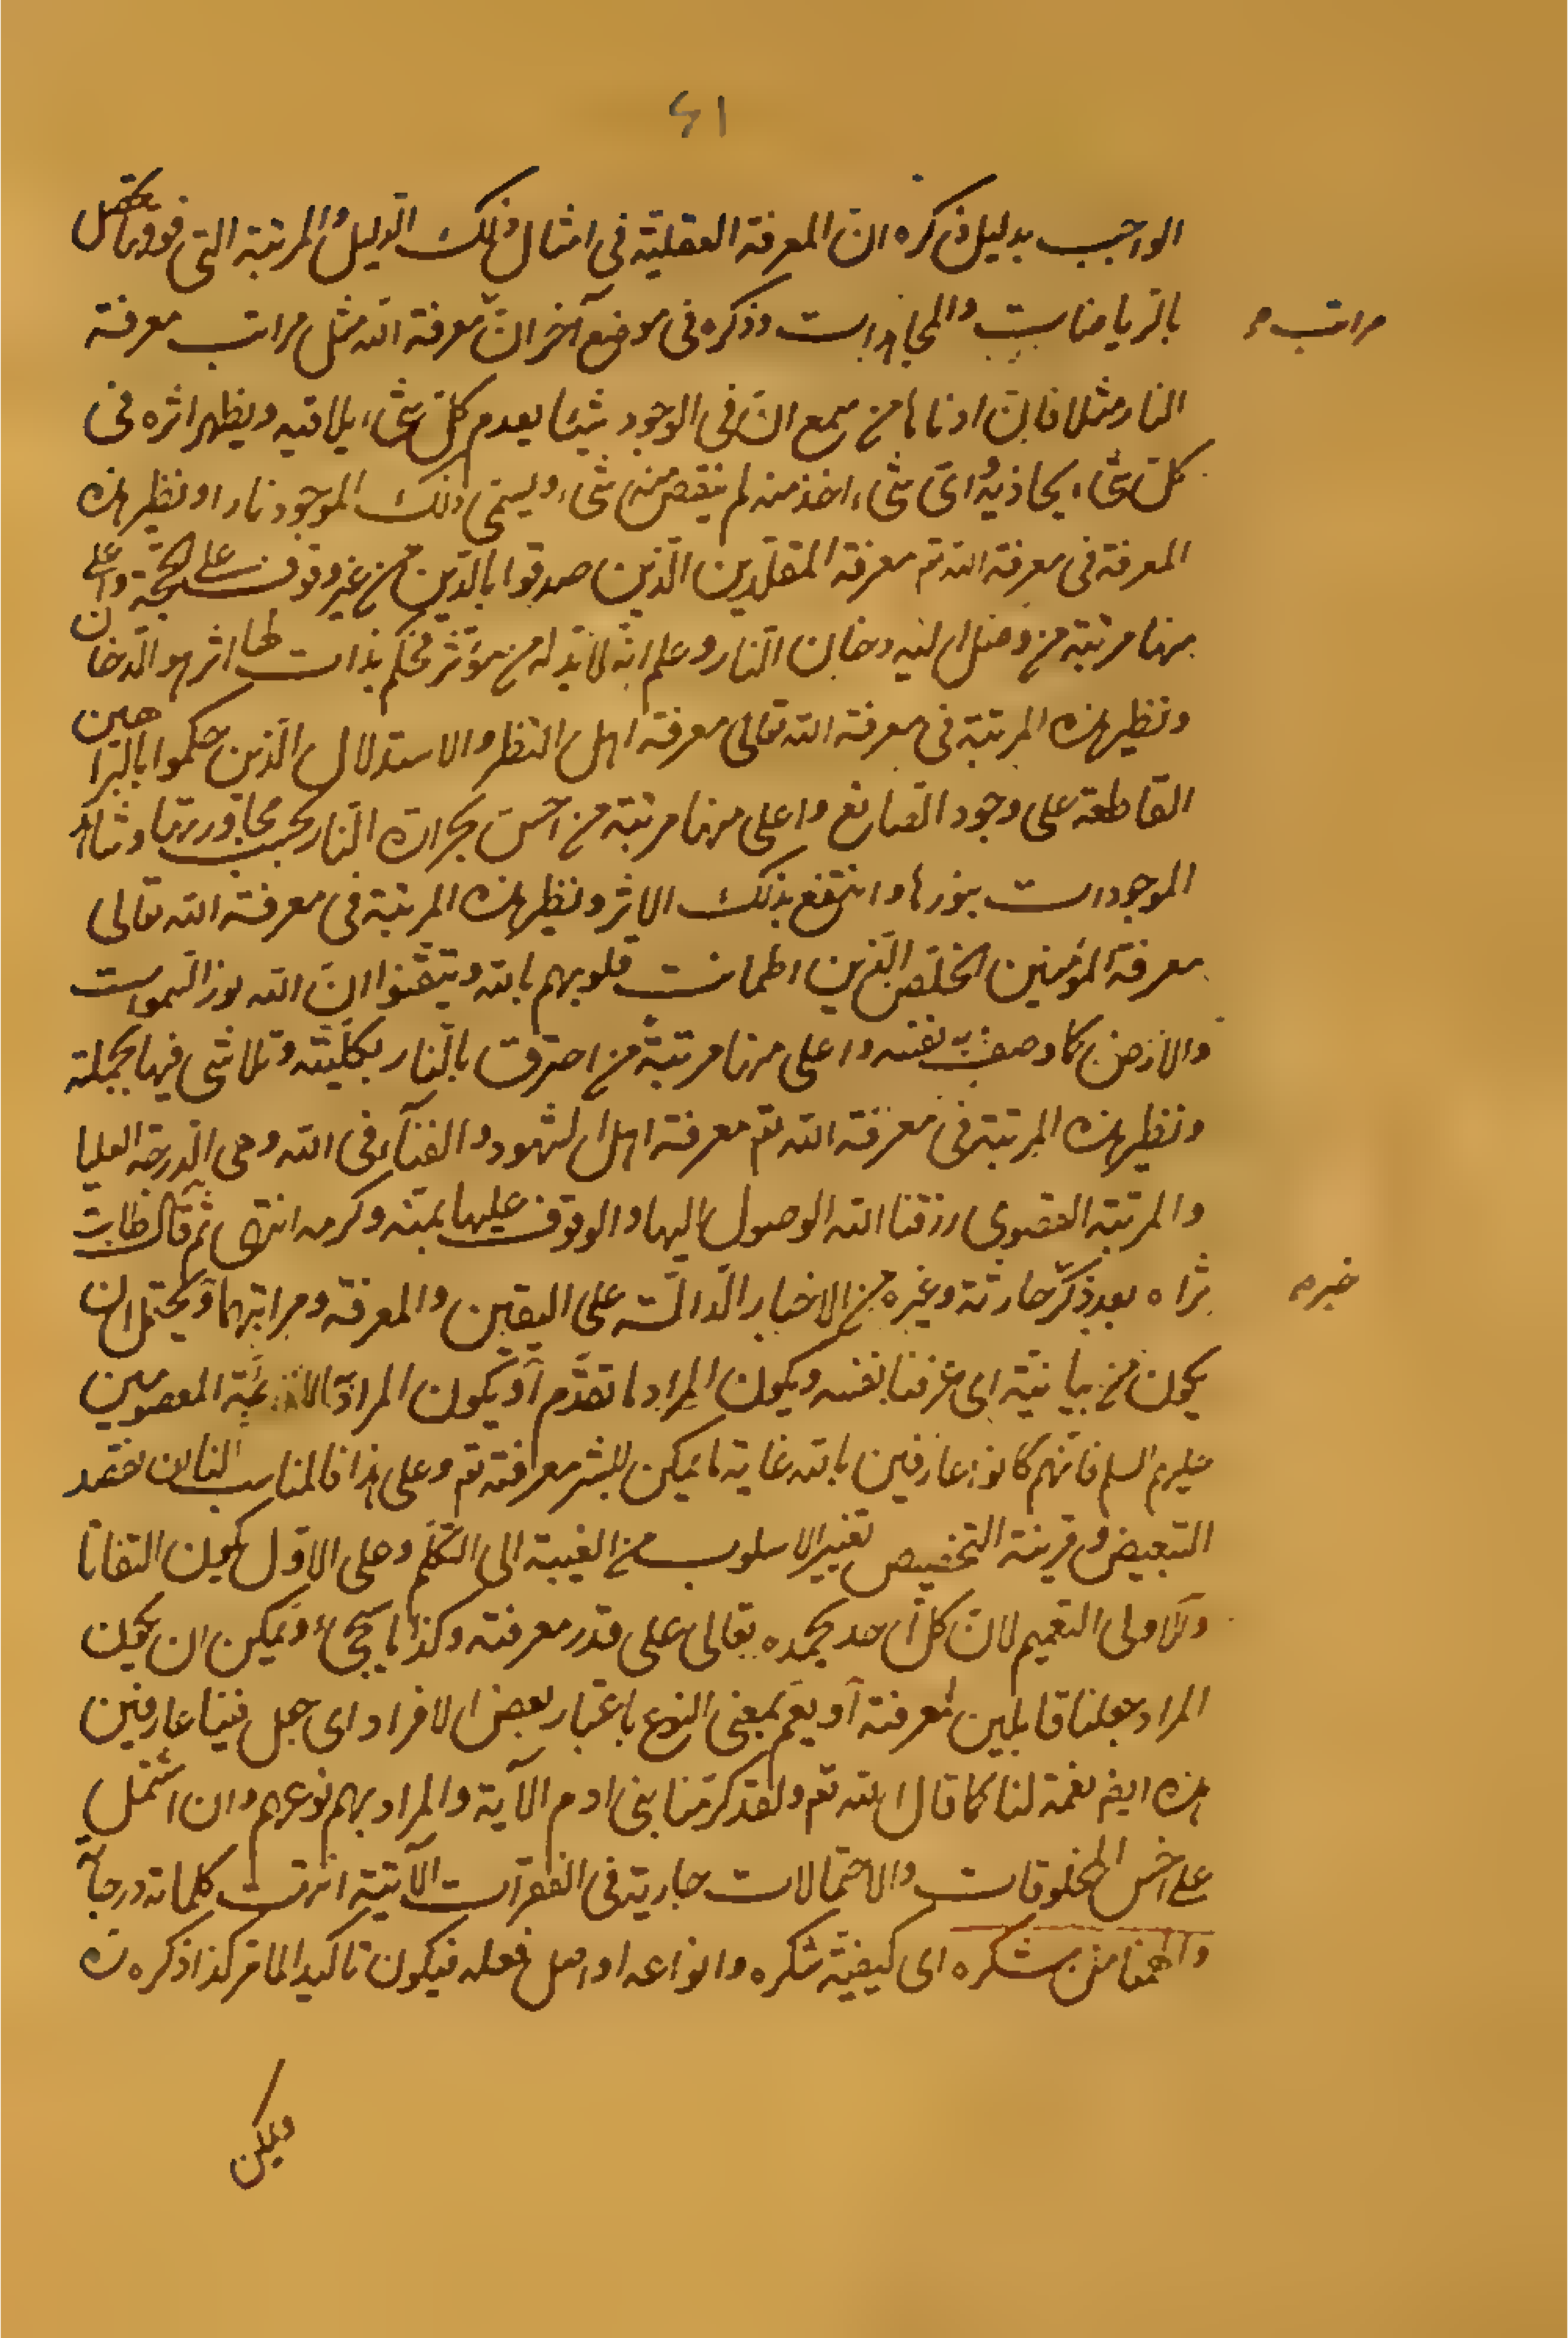 ٤١
الواجب بدليل ذكره ان المعرفة العقليّة فى امثال ذلك الدليل والمرتبة التى فوقها تحصل
بالرياضات والمجاهدات وذكره فى موضع آخر انّ معرفة الله مثل مراتب معرفة
مراتب
النار مثلا فان ادناها من سمع انّ فى الوجود شيئا يعدم كلّ شئ يلاقيه ويظهر اثره فى
كلّ شئ يحاذيه واىّ شئ اخذ منه لم ينقص منه شئ ويسمّى ذلك الموجود نارا ونظير هذه
المعرفة فى معرفة الله تع معرفة المقلّدين الذين صدقوا بالدين من غير وقوف على الحجّة واعلى
منها مرتبة من وصل اليه دخان النار وعلم انّه لا بدّ له من مؤثر فحكم بذات لها اثر هو الدخان
ونظير هذه المرتبة فى معرفة الله تعالى معرفة اهل النظر والاستدلال الذين حكموا بالبراهين
القاطعة على وجود الصانع واعلى منها مرتبة من احسّ بحرارة النار بحسب مجاورتها وشاهد
الموجودات بنورها وانتفع بذلك الاثر ونظير هذه المرتبة فى معرفة الله تعالى
معرفة المؤمنين الخلّص الذين اطمأنت قلوبهم بالله وتيقّنوا انّ الله نور السموات
والارض كما وصف به نفسه واعلى منها مرتبة من احترق بالنار بكلّيته وتلاشى فيها بجملته
ونظير هذه المرتبة فى معرفة الله تع معرفة اهل الشهود والفناء فى الله وهى الدرجة العليا
والمرتبة القصوى رزقنا الله الوصول اليها والوقوف عليها بمنّه وكرمه انتهى ثم قال طاب
ثراه بعد ذكر حارثة وغيره من الاخبار الدالّة على اليقين والمعرفة ومراتبهما ويحتمل ان
خبر
يكون من بيانيّة اى عرفنا نفسه ويكون المراد ما تقدّم أو يكون المراد الائمّة المعصومين
عليهم السلم فانّهم كانوا عارفين بالله غاية ما يمكن للبشر معرفته تع وعلى هذا فالمناسب لنا ان نقصد
التبعيض وقرينة التخصيص تغيير الاسلوب من الغيبة الى التكلّم وعلى الاوّل يكون التفاتا
والاولى التعميم لانّ كلّ احد يحمده تعالى على قدر معرفته وكذا ما يجئ ويمكن ان يكون
المراد جعلنا قابلين لمعرفته أو يعمّ بمعنى النوع باعتبار بعض الافراد اى جعل فينا عارفين
هذه ايضا نعمة لنا كما قال الله تع ولقد كرّمنا بنى ادم الآية والمراد بهم نوعهم وان اشتمل
على اخسّ المخلوقات والاحتمالات جارية فى الفقرات الآتية انتهت كلماته ودرجاته
والهمنا من شكره اى كيفيّة شكره وانواعه او اصل فعله فيكون تأكيدا لما مرّ كذا ذكره
ويمكن